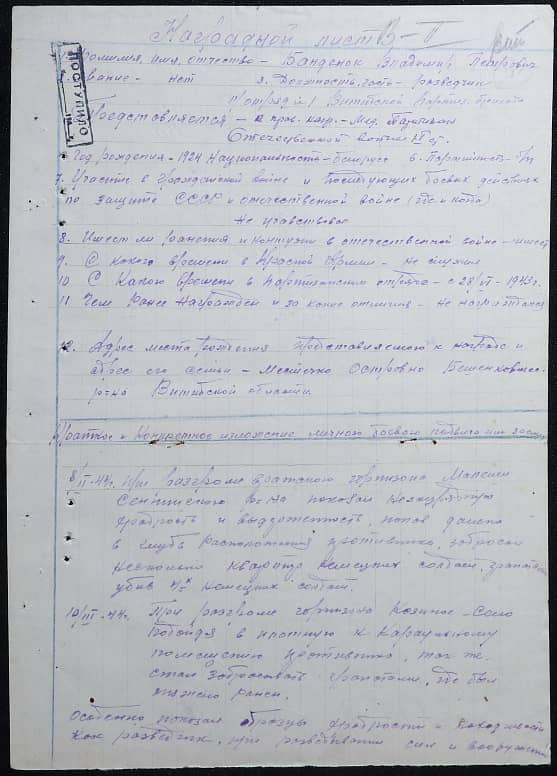 Наградной лист В-II
ПОСТУПИЛО
1. Фамилия, имя, отчество - Банденок Владимир Петрович
2. Звание - нет 3. Должность, часть - разведчик
1 отряд 1 Витебской партиз. бригады
Представляется - к прав. нагр. - Мед. Партизан
Отечественной войны II ст.
Год рождения - 1924 Национальность - белорус 6. Партийность - б/п
7. Участие в гражданской войне и последующих боевых действиях
по защите СССР и отечественной войне (где и когда)
не учавствовал
8. Имеет ли ранения и контузии в отечественной войне - имеет
9. С какого времени в Красной Армии - не служил
10 С Какого времени в партизанском отряде - с 28/VI - 1943 г.
11 Чем Ранее Награжден и за какие отличия - не награждался
12. Адрес места рождения представляемого к награде и
адрес его семьи - Местечко Островно Бешенкович.
р-на Витебской области.
Краткое и Конкретное изложение личного боевого подвига или заслуг
8/II-44г. При разгроме вражеского гарнизона
Сеннинского р-на показал
храбрость и выдержанность, попав далеко
в глубь расположения противника, забросал
несколько квартир немецких солдат, гранатами
убив немецких солдат.
19/III-44г. При разгроме гарнизона Село
Подойдя в плотную к Караульному
помещению противника, так же
стал забрасывать гранатами, где был
тяжело ранен.
Особенно показал образцы храбрости и находчивости
как разведчик, при разведывании сил и вооружения